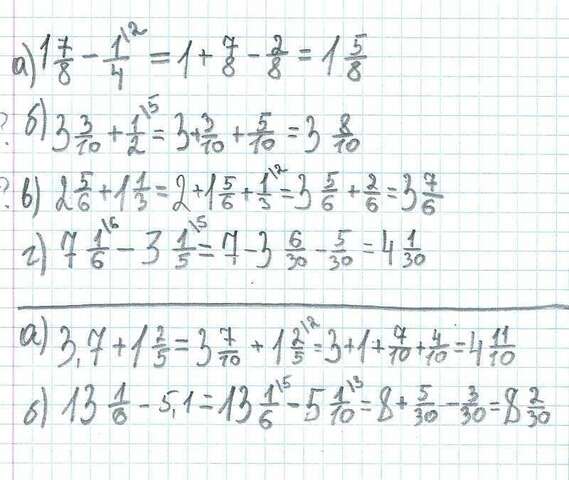 а) 1 7/8 - 1/4 \2 = 1 + 7/8 - 2/8 = 1 5/8
? б) 3 3/10 + 1/2 \5 = 3 + 3/10 + 5/10 = 3 8/10
? в) 2 5/6 + 1 1/3 = 2 + 1 5/6 + 1/3 \2 = 3 5/6 + 2/6 = 3 7/6
г) 7 1/6 \6 - 3 1/5 \5 = 7 - 3 6/30 - 5/30 = 4 1/30
а) 3,7 + 1 2/5 = 3 7/10 + 1 2/5 \2 = 3 + 1 + 7/10 + 4/10 = 4 11/10
б) 13 1/6 - 5,1 = 13 1/6 \5 - 5 1/10 \3 = 8 + 5/30 - 3/30 = 8 2/30